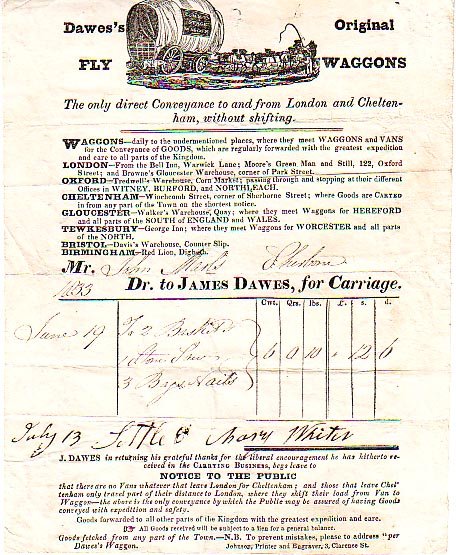 Dawes's Original
FLY WAGGONS
The only direct Conveyance to and from London and Chelten-
ham, without shifting.
WAGGONS—daily to the undermentioned places, where they meet WAGGONS and VANS
for the Conveyance of GOODS, which are regularly forwarded with the greatest expedition
and care to all parts of the Kingdom.
LONDON—From the Bell Inn, Warwick Lane; Moore's Green Man and Still, 122, Oxford
Street; and Browne's Gloucester Warehouse, corner of Park Street.
OXFORD—Tredwell's Warehouse, Corn Market; passing through and stopping at their different
Offices in WITNEY, BURFORD, and NORTHLEACH.
CHELTENHAM—Winchcomb Street, corner of Sherborne Street; where Goods are CARTED
in from any part of the Town on the shortest notice.
GLOUCESTER—Walker's Warehouse, Quay; where they meet Waggons for HEREFORD
and all parts of the SOUTH of ENGLAND and WALES.
TEWKESBURY—George Inn; where they meet WAGGONS for WORCESTER and all parts
of the NORTH.
BRISTOL—Davis's Warehouse, Counter Slip.
BIRMINGHAM—Red Lion, Digbeth.
Mr. John
1833 Dr. to JAMES DAWES, for Carriage.
Cwt. Qrs. lbs. £. s. d.
June 19 To 2
6 0 10 12 6
3 Bags Nails
July 13 Settled Mary
J. DAWES in returning his grateful thanks for the liberal encouragement he has hitherto re-
ceived in the CARRYING BUSINESS, begs leave to
NOTICE TO THE PUBLIC
that there are no Vans whatever that leave London for Cheltenham; and those that leave Chel-
tenham only travel part of their distance to London, where they shift their load from Van to
Waggon—the above is the only conveyance by which the Public may be assured of having Goods
conveyed with expedition and safety.
Goods forwarded to all other parts of the Kingdom with the greatest expedition and care.
All Goods received will be subject to a lien for a general balance.
Goods fetched from any part of the Town.—N.B. To prevent mistakes, please to address "per
Dawes's Waggon. Johnson, Printer and Engraver, 3, Clarence St.